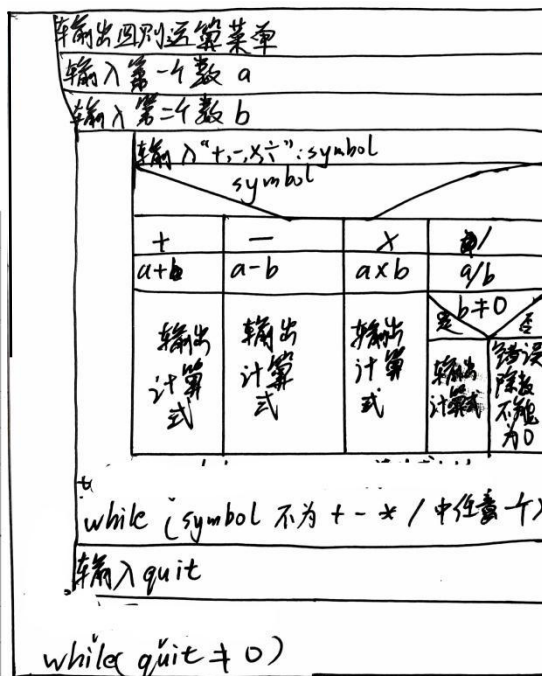 输出四则运算菜单
输入第一个数 a
输入第二个数 b
输入"+,-,×,÷":symbol
symbol
+ — × /
a+b a-b a×b a/b
b≠0
是 否
输出计算式 输出计算式 输出计算式 输出计算式 错误除数不能为0
while (symbol 不为 + - * / 中任意一个)
输入 quit
while( quit ≠ 0)